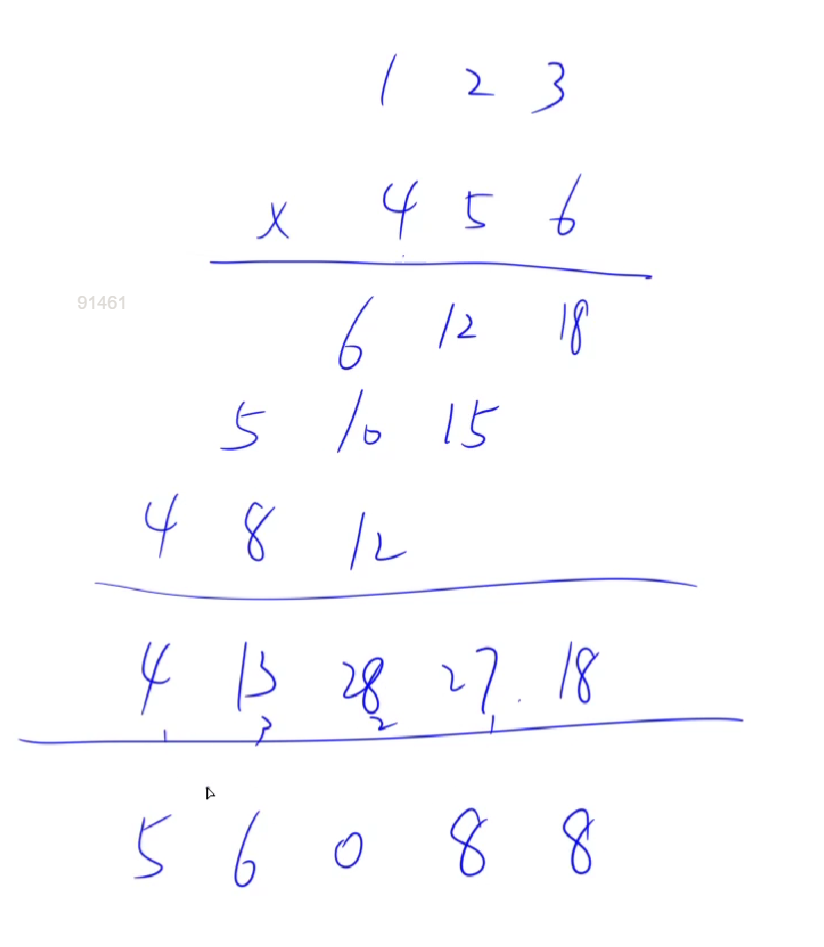 1 2 3
x 4 5 6
91461
6 12 18
5 10 15
4 8 12
4 13 28 27 . 18
1 3 2 1
5 6 0 8 8